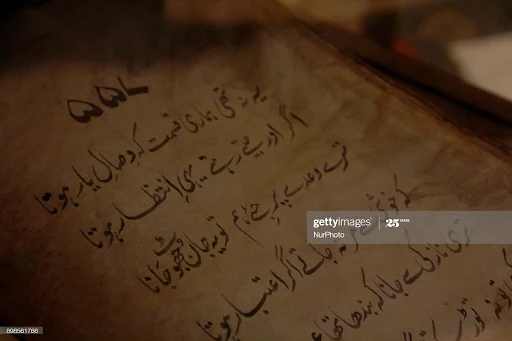 یہ نہ تھی ہماری قسمت کہ وصال یار ہوتا
اگر اور جیتے رہتے یہی انتظار ہوتا
ترے وعدے پر جئے ہم تو یہ جان جھوٹ جانا
کہ خوشی سے مر نہ جاتے اگر اعتبار ہوتا
تری نازکی سے جانا کہ بندھا تھا
gettyimages 25 YEARS
NurPhoto